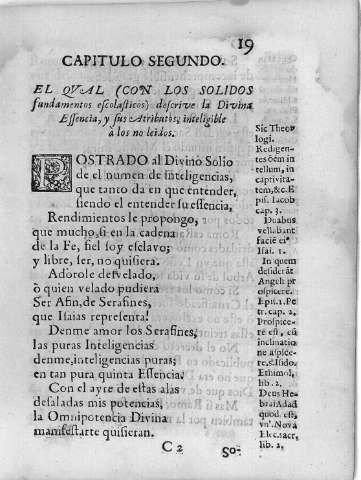 19
CAPITULO SEGUNDO.
EL QVAL (CON LOS SOLIDOS
fundamentos escolasticos) descrive la Divina
Essencia, y sus Atributos, inteligible
à los no leidos.
POSTRADO al Divino Solio
de el numen de inteligencias,
que tanto da en que entender,
siendo el entender su essencia,
Rendimientos le propongo,
que mucho, si en la cadena
de la Fe, fiel soy esclavo;
y libre, ser, no quisiera.
Adorole desvelado,
ò quien velado pudiera
Ser Afin, de Serafines,
que Isaias representa!
Denme amor los Serafines,
las puras Inteligencias
denme, inteligencias puras;
en tan pura quinta Essencia.
Con el ayre de estas alas
desaladas mis potencias,
la Omnipotencia Divina
manifestarte quisieran.
C 2
So-
Sic Theo-
logi.
Redigen-
tes oẽm in
tellum, in
captivita-
tem, &c. E
pis. Iacob
cap. 3.
Duabus
vellabant
faciẽ eiº
Isai. 1.
In quem
desiderãt
Angeli pr
ospicere.
Epis. 1. Pe
tr. cap. 2.
Prospice-
re est, cũ
inclinatio
ne aspice-
re, S. Isido.
Ethimol,
lib. 2.
Deus He
brai Adad
quod est,
vnº. Nova
Elec. sacr,
lib. 2,